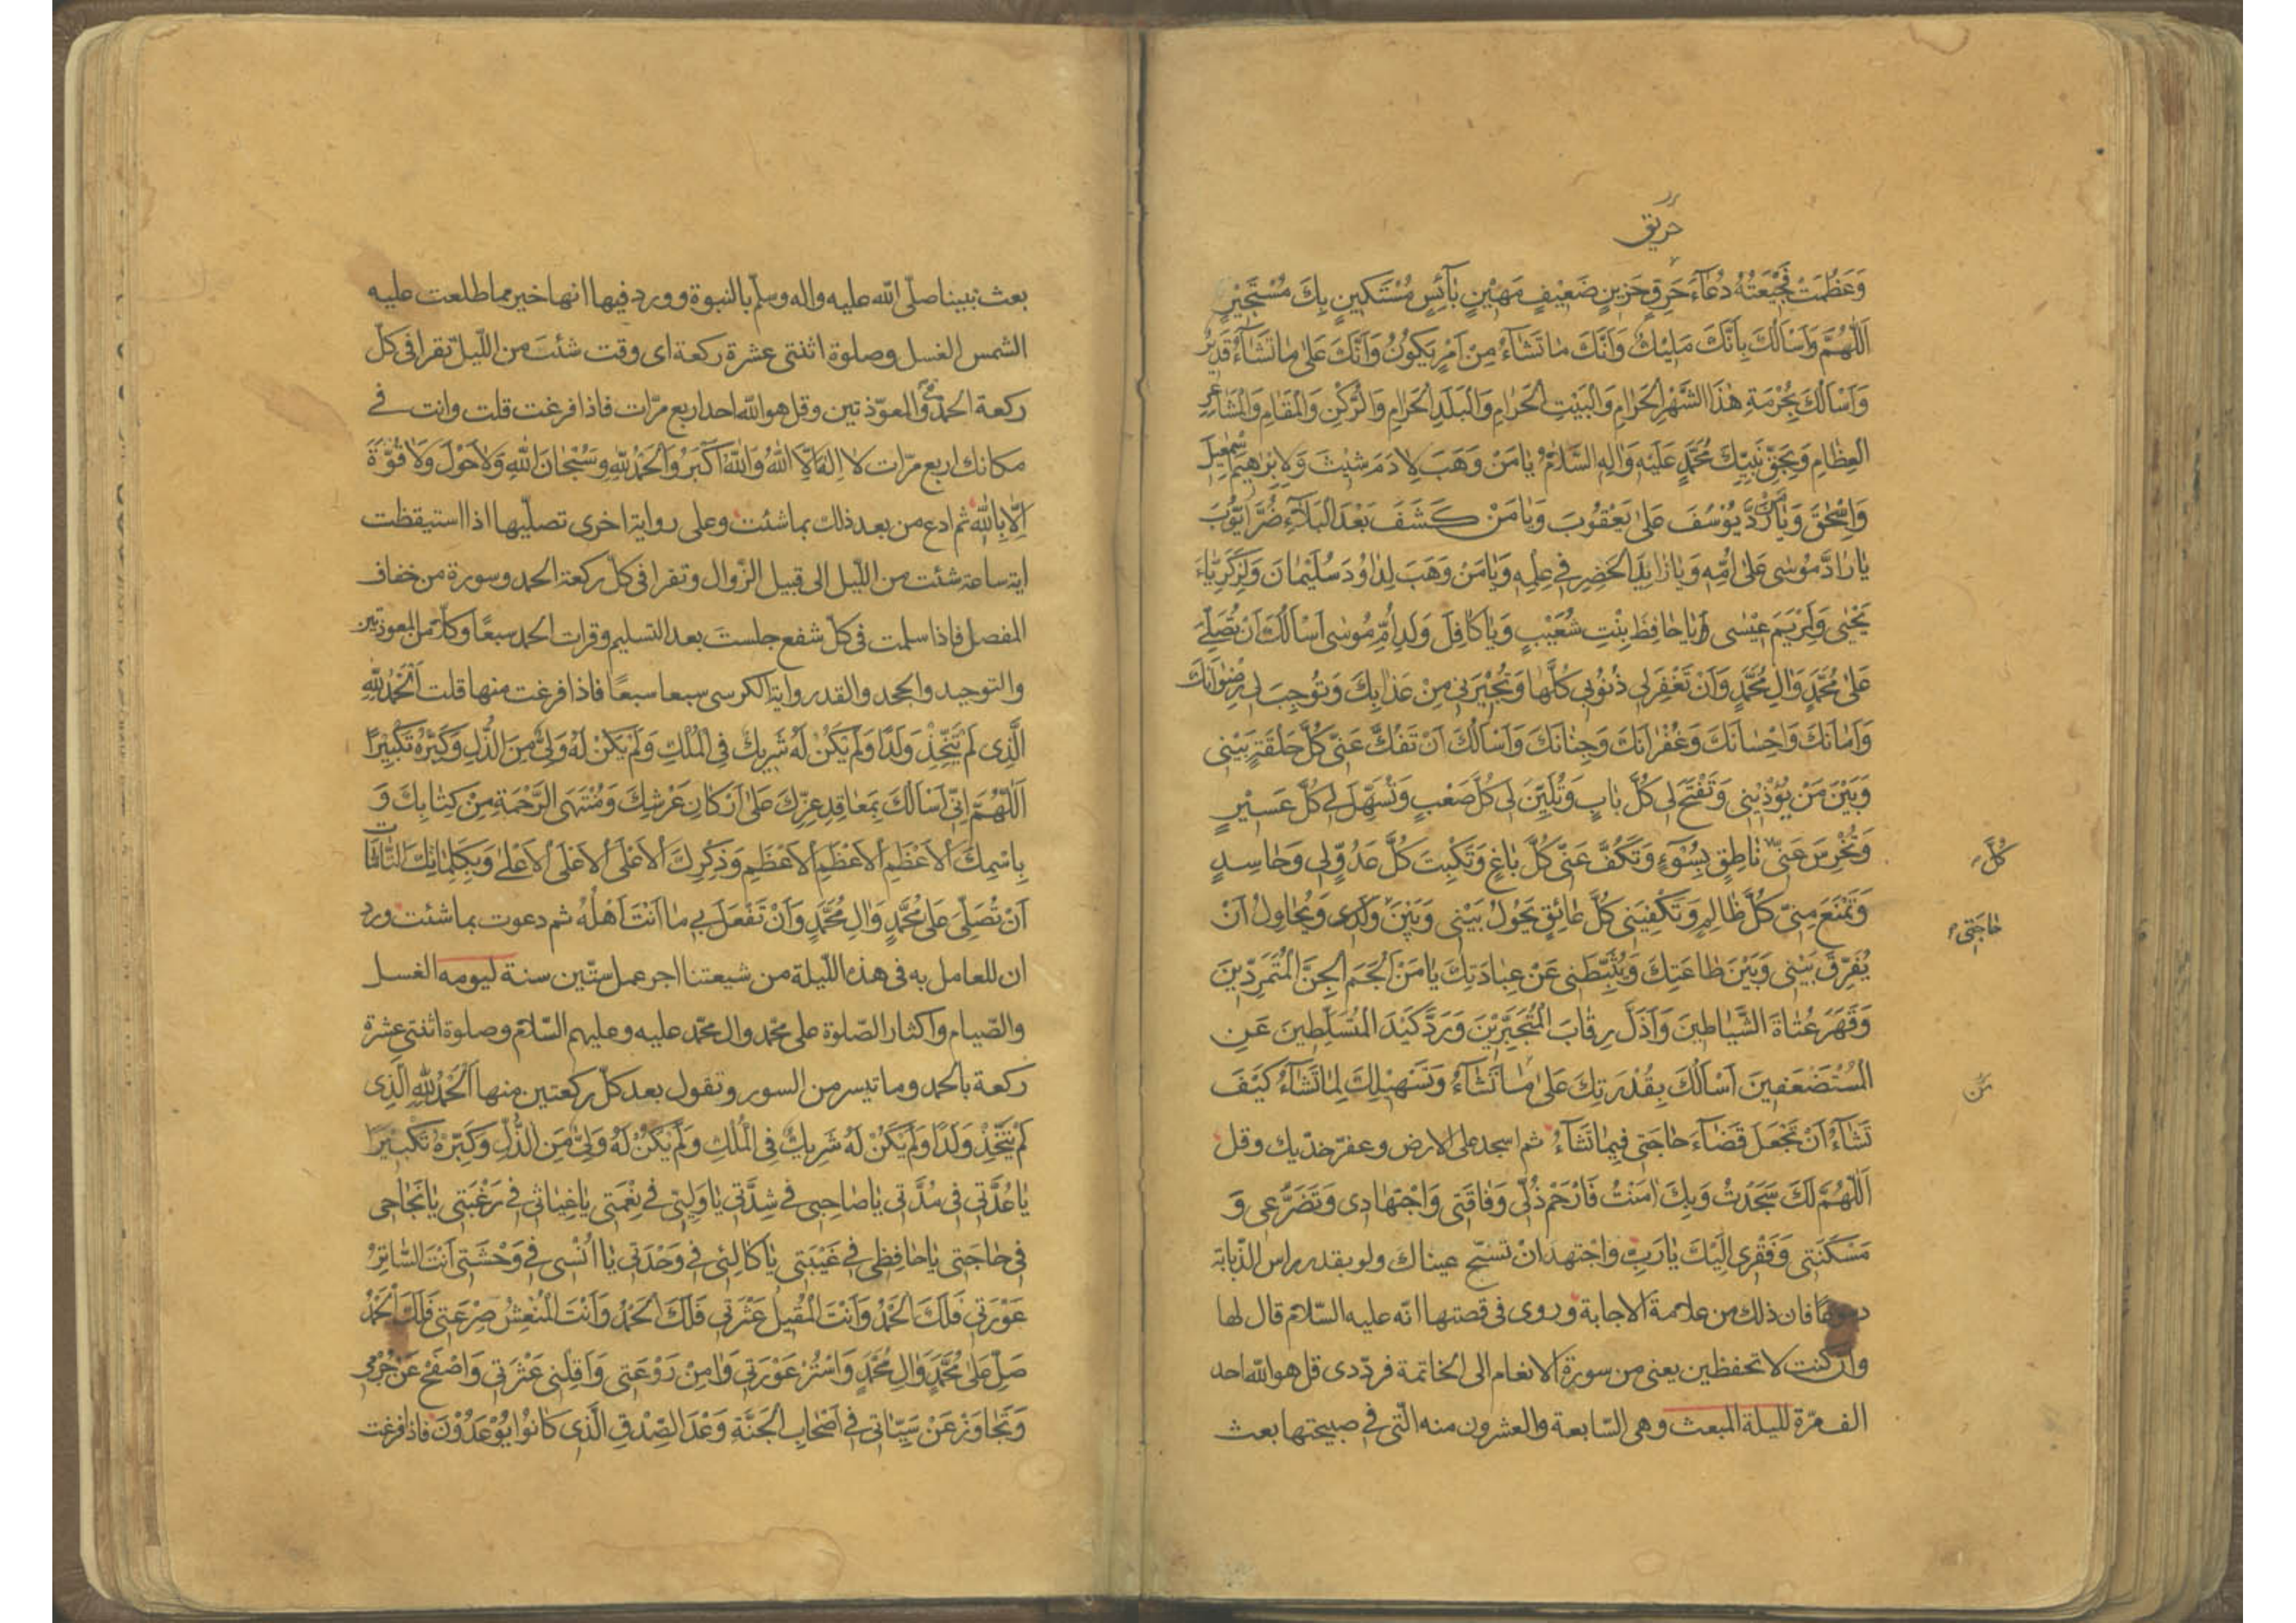 حريق
وَعَظُمَتْ فَجْيعَتُهُ دُعَآءَ حَرِقٍ حَزِينٍ ضَعِيفٍ مَهِيْنٍ بَآئِسٍ مُسْتَكينٍ بِكَ مُسْتَجيْرٍ
اَللّٰهُمَّ وَاَسْاَلُكَ بِاَنَّكَ مَليْكٌ وَاَنَّكَ مَا تَشَآءُ مِنْ اَمْرٍ يَكُونُ وَاَنَّكَ عَلىٰ مٰا تَشَآءُ قَديْرٌ
وَاَسْاَلُكَ بِحُرْمَةِ هٰذَا الشَّهْرِ الْحَرٰامِ وَالْبَيْتِ الْحَرٰامِ وَالْبَلَدِ الْحَرٰامِ وَالرُّكْنِ وَالْمَقٰامِ وَالْمَشٰاعِرِ
الْعِظٰامِ وَبِحَقِّ نَبِيِّكَ مُحَمَّدٍ عَلَيْهِ وَاٰلِهِ السَّلاٰمُ يٰا مَنْ وَهَبَ لِاٰدَمَ شِيْثَ وَلِاِبْرٰهيْمَ اِسْمٰعيْلَ
وَاِسْحٰقَ وَيٰا مَنْ رَدَّ يُوْسُفَ عَلىٰ يَعْقُوْبَ وَيٰا مَنْ كَشَفَ بَعْدَ الْبَلاٰءِ ضُرَّ اَيُّوْبَ
يٰا رٰادَّ مُوْسٰى عَلىٰ اُمِّهِ وَيٰا زٰايِدَ الْخَضِرِ فِي عِلْمِهِ وَيٰا مَنْ وَهَبَ لِدٰاوُدَ سُلَيْمٰانَ وَلِزَكَرِيّٰاءَ
يَحْيٰى وَلِمَرْيَمَ عِيْسٰى وَيٰا حٰافِظَ بِنْتِ شُعَيْبٍ وَيٰا كٰافِلَ وَلَدِ اُمِّ مُوْسٰى اَسْاَلُكَ اَنْ تُصَلِّيَ
عَلىٰ مُحَمَّدٍ وَاٰلِ مُحَمَّدٍ وَاَنْ تَغْفِرَ لِي ذُنُوْبِي كُلَّهٰا وَتُجيْرَنِي مِنْ عَذٰابِكَ وَتُوْجِبَ لِي رِضْوٰانَكَ
وَاَمٰانَكَ وَاِحْسٰانَكَ وَغُفْرٰانَكَ وَجِنٰانَكَ وَاَسْاَلُكَ اَنْ تَفُكَّ عَنِّي كُلَّ حَلْقَةٍ بَيْنِي
وَبَيْنَ مَنْ يُؤْذِيْنِي وَتَفْتَحَ لِي كُلَّ بٰابٍ وَتُلَيِّنَ لِي كُلَّ صَعْبٍ وَتُسَهِّلَ لِي كُلَّ عَسيْرٍ
وَتُخْرِسَ عَنِّي نٰاطِقٍ بِسُوْءٍ وَتَكُفَّ عَنِّي كُلَّ بٰاغٍ وَتَكْبِتَ كُلَّ عَدُوٍّ لِي وَحٰاسِدٍ
كُلَّ
وَتَمْنَعَ مِنِّي كُلَّ ظٰالِمٍ وَتَكْفِيَنِي كُلَّ عٰائِقٍ يَحُوْلُ بَيْنِي وَبَيْنَ وَلَدِي وَيُحٰاوِلُ اَنْ
حٰاجَتِي
يُفَرِّقَ بَيْنِي وَبَيْنَ طٰاعَتِكَ وَيُثَبِّطَنِي عَنْ عِبٰادَتِكَ يٰا مَنْ اَلْجَمَ الْجِنَّ الْمُتَمَرِّدِيْنَ
وَقَهَرَ عُتٰاةَ الشَّيٰاطِيْنَ وَاَذَلَّ رِقٰابَ الْمُتَجَبِّرِيْنَ وَرَدَّ كَيْدَ الْمُتَسَلِّطِيْنَ عَنِ
الْمُسْتَضْعَفِيْنَ اَسْاَلُكَ بِقُدْرَتِكَ عَلىٰ مٰا تَشَآءُ وَتَسْهيْلِكَ لِمٰا تَشَآءُ كَيْفَ
تَشَآءُ اَنْ تَجْعَلَ قَضَآءَ حٰاجَتِي فِيمٰا تَشَآءُ ثم اسجد على الارض وعفر خدّيك وقل
اَللّٰهُمَّ لَكَ سَجَدْتُ وَبِكَ اٰمَنْتُ فَارْحَمْ ذُلّي وَفٰاقَتِي وَاجْتِهٰادِي وَتَضَرُّعِي وَ
مَسْكَنَتِي وَفَقْرِي اِلَيْكَ يٰا رَبِّ واجتهد ان تسحّ عيناك ولو بقدر راس الذّبابة
دموعا فان ذلك من علامة الاجابة وروى فى قصتها انّه عليه السّلام قال لها
وان كنت لا تحفظين يعنى من سورة الانعام الى الخاتمة فردّدى قل هو اللّه احد
الف مرّة لليلة المبعث وهى السّابعة والعشرون منه الّتى فى صبيحتها بعث
بعث نبينا صلّى اللّه عليه واله وسلّم بالنبوة وورد فيها انها خير مما طلعت عليه
الشمس الغسل وصلوة اثنتى عشرة ركعة اى وقت شئت من اللّيل تقرا فى كلّ
ركعة الحمد والمعوّذتين وقل هو اللّه احد اربع مرّات فاذا فرغت قلت وانت فى
مكانك اربع مرّات لاٰ اِلٰهَ اِلاَّ اللّٰهُ وَاللّٰهُ اَكْبَرُ وَالْحَمْدُ لِلّٰهِ وَسُبْحٰانَ اللّٰهِ وَلاٰ حَوْلَ وَلاٰ قُوَّةَ
اِلاّٰ بِاللّٰهِ ثم ادع من بعد ذلك بما شئت وعلى رواية اخرى تصلّيها اذا استيقظت
اية ساعة شئت من اللّيل الى قبيل الزّوال وتقرا فى كلّ ركعة الحمد وسورة من خفاف
المفصل فاذا سلمت فى كلّ شفع جلست بعد التسليم وقرات الحمد سبعًا وكلا من المعوذتين
والتوحيد والجحد والقدر واية الكرسى سبعا سبعًا فاذا فرغت منها قلت اَلْحَمْدُ لِلّٰهِ
الَّذِى لَمْ يَتَّخِذْ وَلَدًا وَلَمْ يَكُنْ لَهُ شَريْكٌ فِي الْمُلْكِ وَلَمْ يَكُنْ لَهُ وَلِيٌّ مِنَ الذُّلِّ وَكَبِّرْهُ تَكْبيْرًا
اَللّٰهُمَّ اِنّي اَسْاَلُكَ بِمَعٰاقِدِ عِزِّكَ عَلىٰ اَرْكٰانِ عَرْشِكَ وَمُنْتَهَى الرَّحْمَةِ مِنْ كِتٰابِكَ وَ
بِاسْمِكَ الْاَعْظَمِ الْاَعْظَمِ الْاَعْظَمِ وَذِكْرِكَ الْاَعْلَى الْاَعْلَى الْاَعْلىٰ وَبِكَلِمٰاتِكَ التّٰامّٰاتِ
اَنْ تُصَلِّيَ عَلىٰ مُحَمَّدٍ وَاٰلِ مُحَمَّدٍ وَاَنْ تَفْعَلَ بِي مٰا اَنْتَ اَهْلُهُ ثم دعوت بما شئت ورد
ان للعامل به فى هذه اللّيلة من شيعتنا اجر عمل ستّين سنة ليومه الغسل
والصّيام واكثار الصّلوة على محمّد وال محمّد عليه وعليهم السّلام وصلوة اثنتى عشرة
ركعة بالحمد وما تيسر من السور وتقول بعد كلّ ركعتين منها اَلْحَمْدُ لِلّٰهِ الَّذِى
لَمْ يَتَّخِذْ وَلَدًا وَلَمْ يَكُنْ لَهُ شَريْكٌ فِي الْمُلْكِ وَلَمْ يَكُنْ لَهُ وَلِيٌّ مِنَ الذُّلِّ وَكَبِّرْهُ تَكْبيْرًا
يٰا عُدَّتِي فِي مُدَّتِي يٰا صٰاحِبِي فِي شِدَّتِي يٰا وَلِيّي فِي نِعْمَتِي يٰا غِيٰاثِي فِي رَغْبَتِي يٰا نَجٰاحِي
فِي حٰاجَتِي يٰا حٰافِظِي فِي غَيْبَتِي يٰا كٰالِئِي فِي وَحْدَتِي يٰا اُنْسِي فِي وَحْشَتِي اَنْتَ السّٰاتِرُ
عَوْرَتِي فَلَكَ الْحَمْدُ وَاَنْتَ الْمُقيْلُ عَثْرَتِي فَلَكَ الْحَمْدُ وَاَنْتَ الْمُنْعِشُ صِرْعَتِي فَلَكَ الْحَمْدُ
صَلِّ عَلىٰ مُحَمَّدٍ وَاٰلِ مُحَمَّدٍ وَاسْتُرْ عَوْرَتِي وَاٰمِنْ رَوْعَتِي وَاَقِلْنِي عَثْرَتِي وَاصْفَحْ عَنْ جُرْمِي
وَتَجٰاوَزْ عَنْ سَيِّئٰاتِي فِي اَصْحٰابِ الْجَنَّةِ وَعْدَ الصِّدْقِ الَّذِى كٰانُوْا يُوْعَدُوْنَ فاذا فرغت